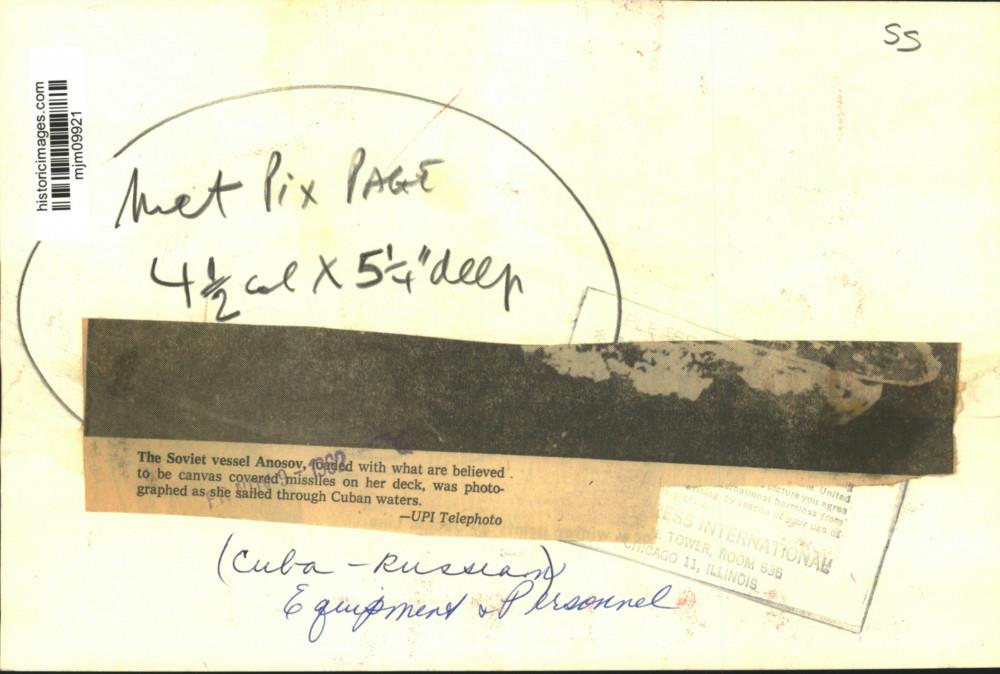 SS
historicimages.com
mjm09921
Met Pix PAGE
4 1/2 col X 5 1/4" deep
The Soviet vessel Anosov, loaded with what are believed
to be canvas covered missiles on her deck, was photo-
graphed as she sailed through Cuban waters.
—UPI Telephoto
1962
United
picture you agree
ternational harmless from
by reason of your use of
ESS INTERNATIONAL
TOWER, ROOM 636
CHICAGO 11, ILLINOIS
(Cuba - Russian)
Equipment & Personnel